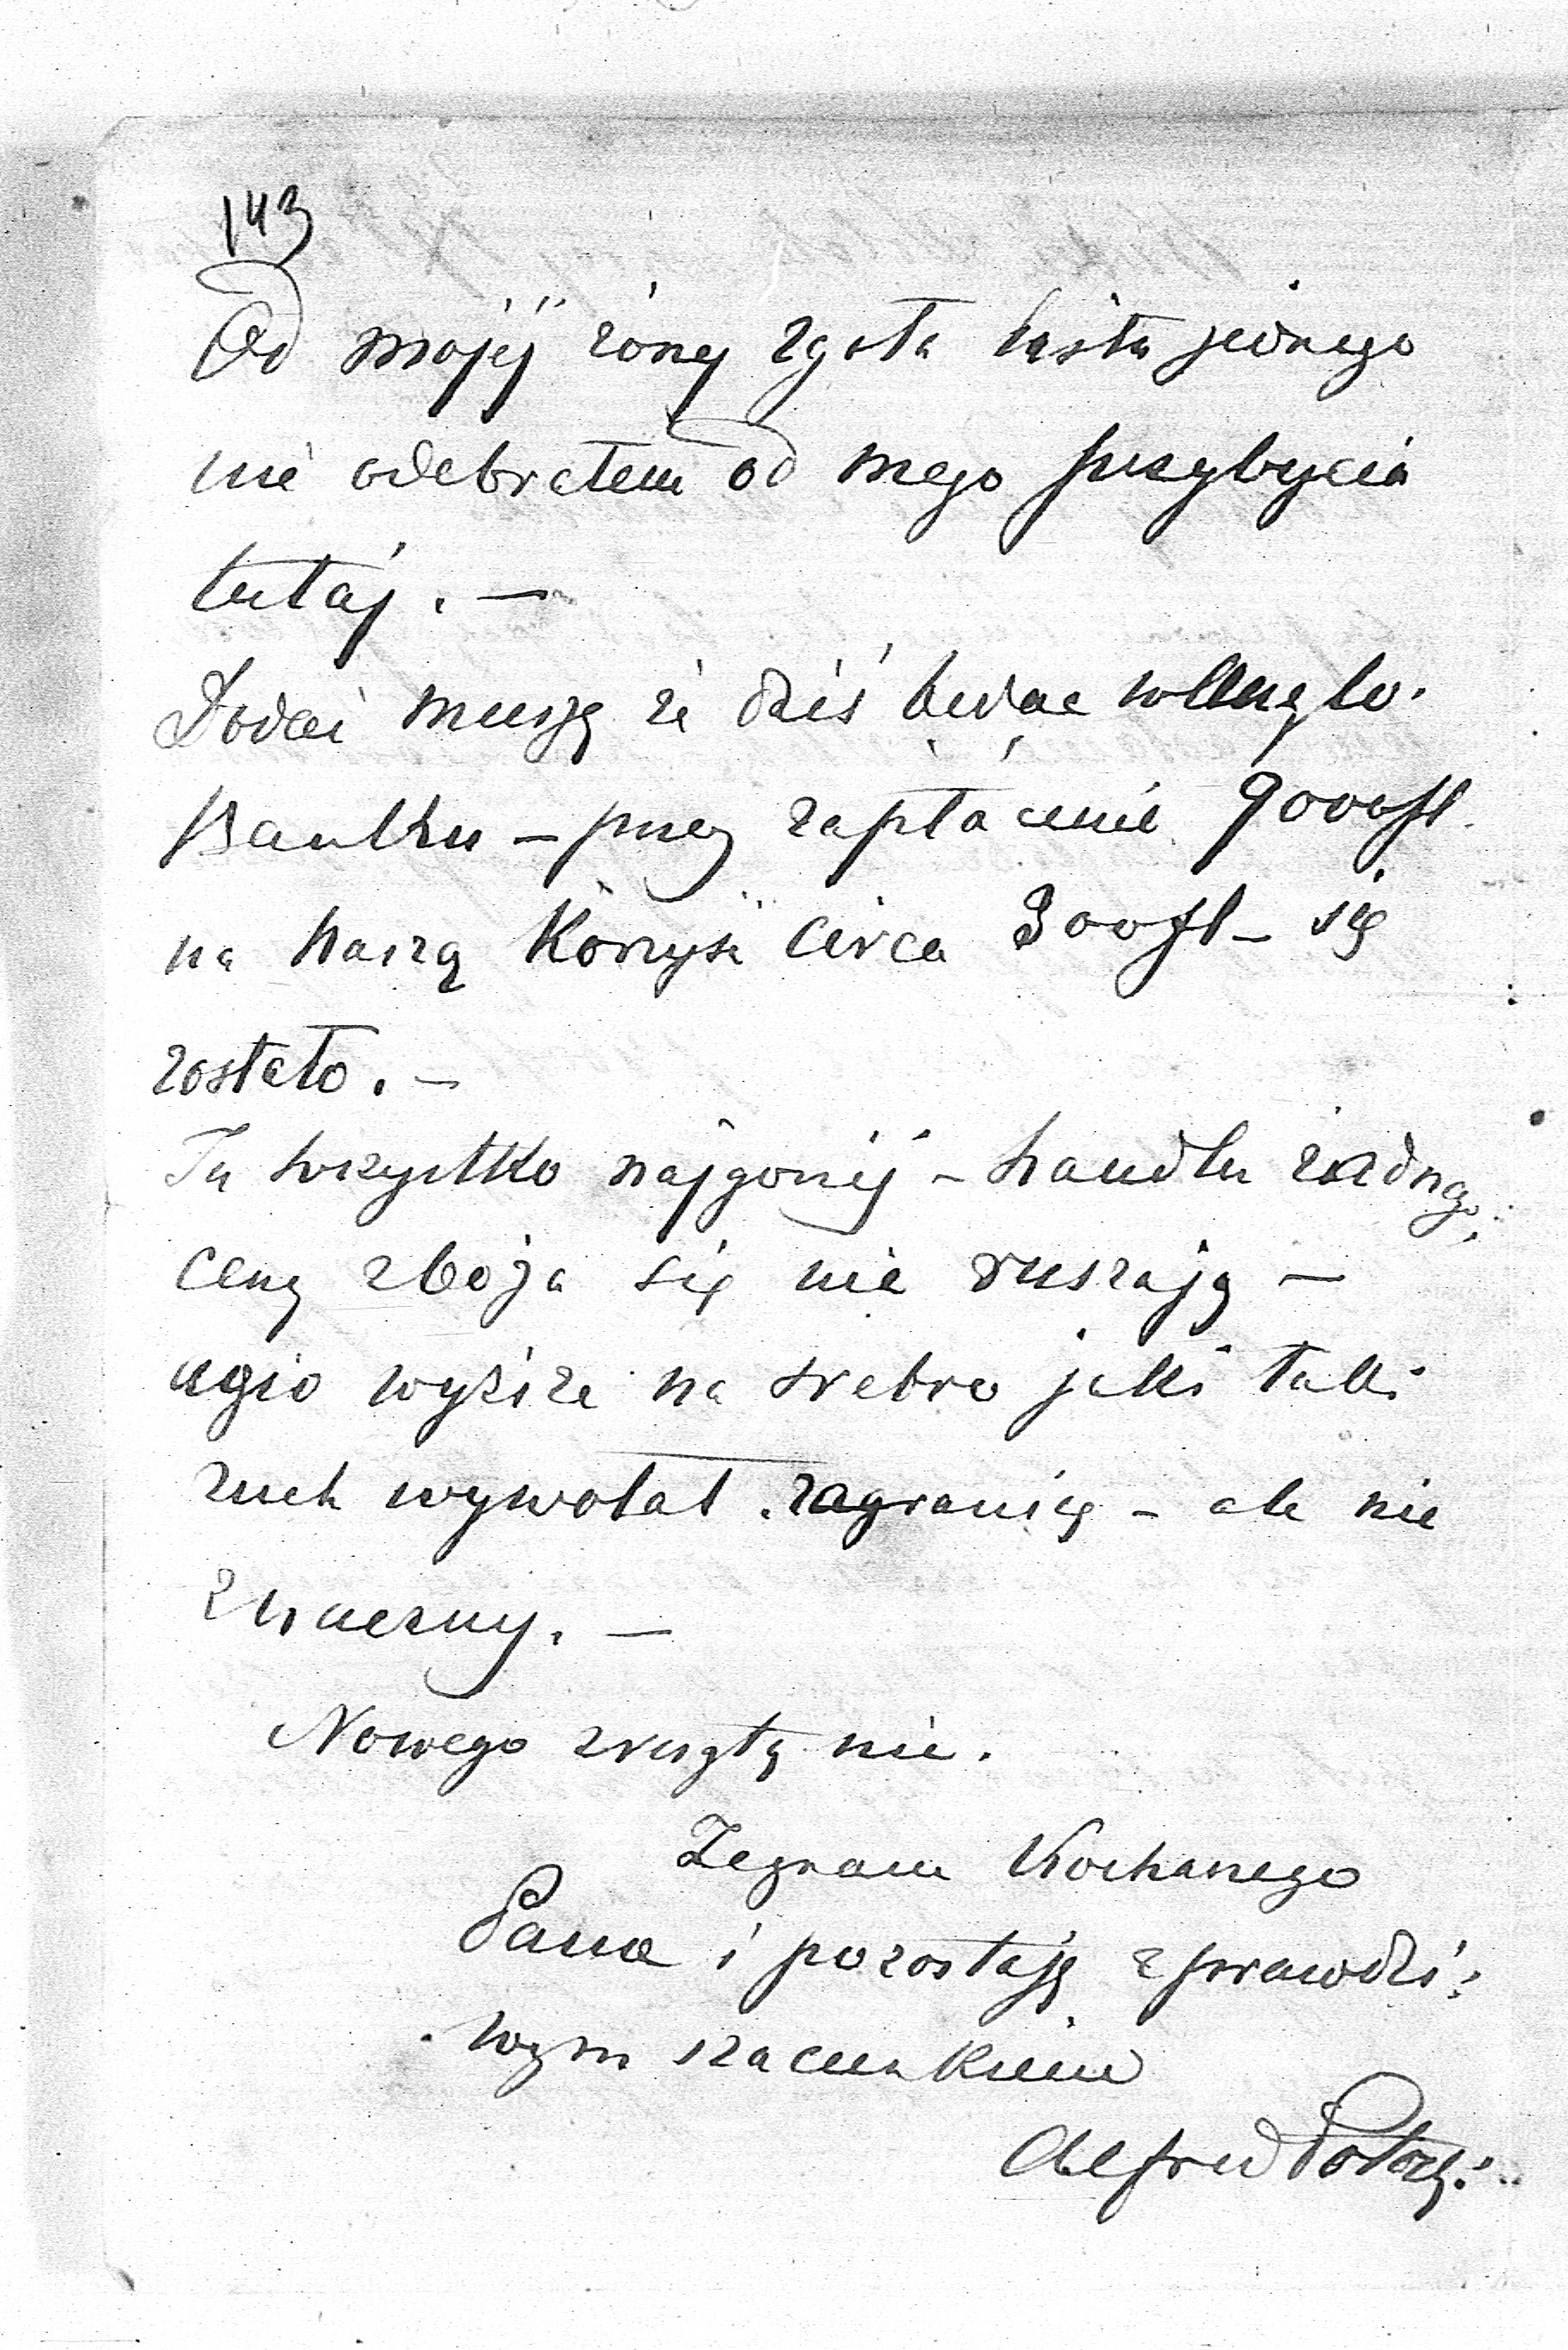 143
Od mojéj żony zgoła listu jednego
nie odebrałem od mego przybycia
tutaj. —
Dodać muszę że dziś będąc w Anglo.
Banku — przy zapłacenie 9000 fl.
na naszą korzyść circa 300 fl — się
zostało. —
Tu wszystko najgorzéj — handlu żadnego,
ceny zboża się nie ruszają —
agio wyższe na srebro jaki taki
ruch wywołał zagranicę — ale nie
znaczny. —
Nowego zresztą nic.
Żegnam Kochanego
Pana i pozostaję z prawdzi:
wym szacunkiem
Alfred Potocki